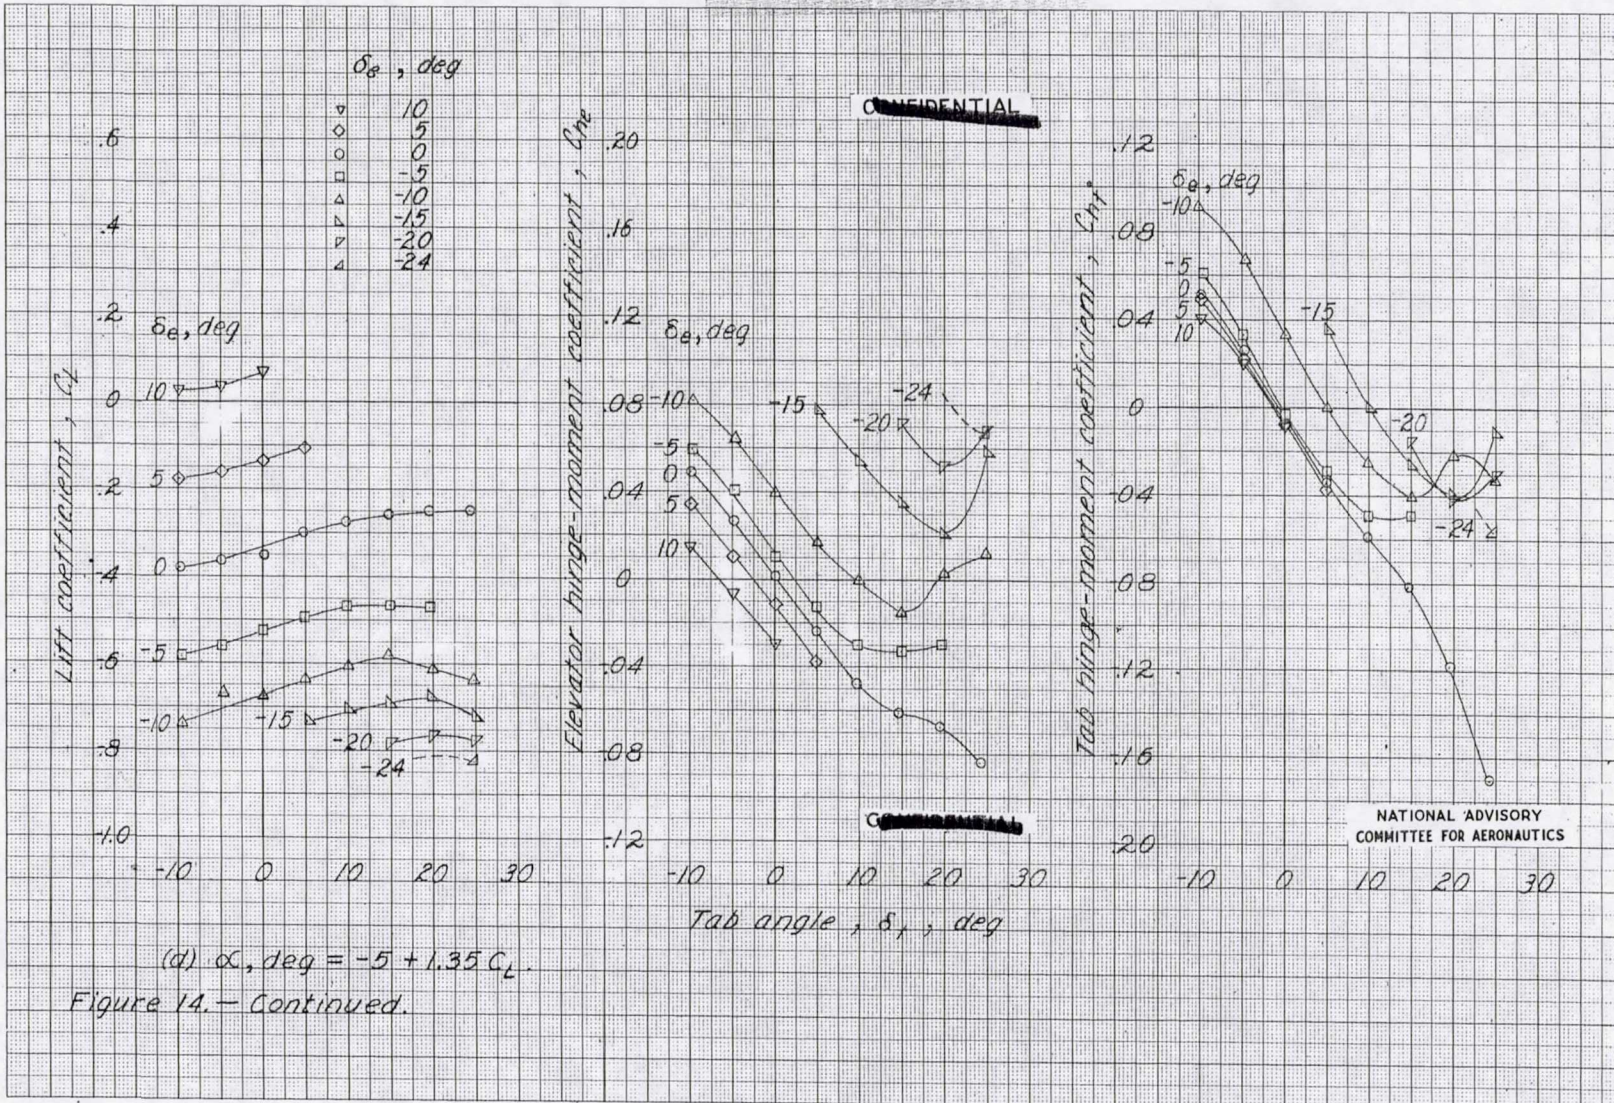 δe, deg
10
5
0
-5
-10
-15
-20
-24
Lift coefficient, CL
.6
.4
.2
0
-.2
-.4
-.6
-.8
-1.0
δe, deg
10
5
0
-5
-10
-15
-20
-24
-10 0 10 20 30
Elevator hinge-moment coefficient, Che
.20
.16
.12
.08
.04
0
-.04
-.08
-.12
δe, deg
-10
-5
0
5
10
-15
-20
-24
-10 0 10 20 30
CONFIDENTIAL
Tab hinge-moment coefficient, Cht
.12
.08
.04
0
-.04
-.08
-.12
-.16
-.20
δe, deg
-10
-5
0
5
10
-15
-20
-24
-10 0 10 20 30
CONFIDENTIAL
NATIONAL ADVISORY
COMMITTEE FOR AERONAUTICS
Tab angle, δt, deg
(d) α, deg = -5 + 1.35 CL.
Figure 14.— Continued.